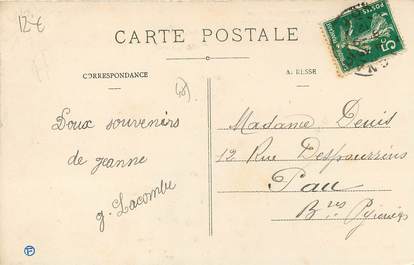 12 €
CARTE POSTALE
CORRESPONDANCE
ADRESSE
Doux souvenirs
de jeanne
g. Lacombe
Madame Denis
12 Rue Despourrins
Pau
Bses Pyrénées
5c
POSTES